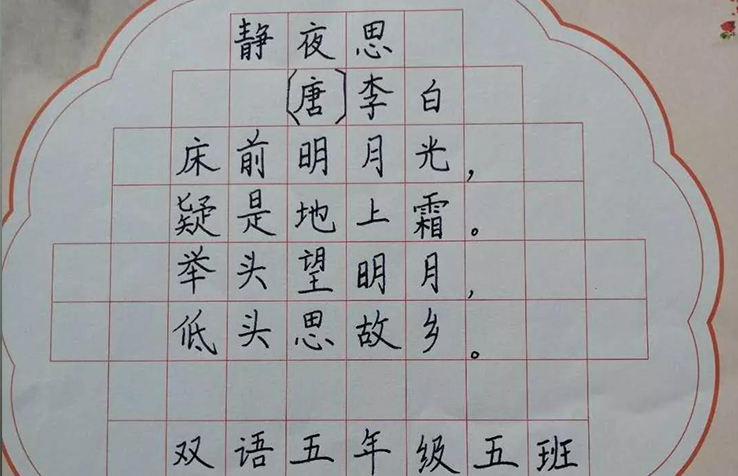 静夜思
[唐]李白
床前明月光，
疑是地上霜。
举头望明月，
低头思故乡。
双语五年级五班